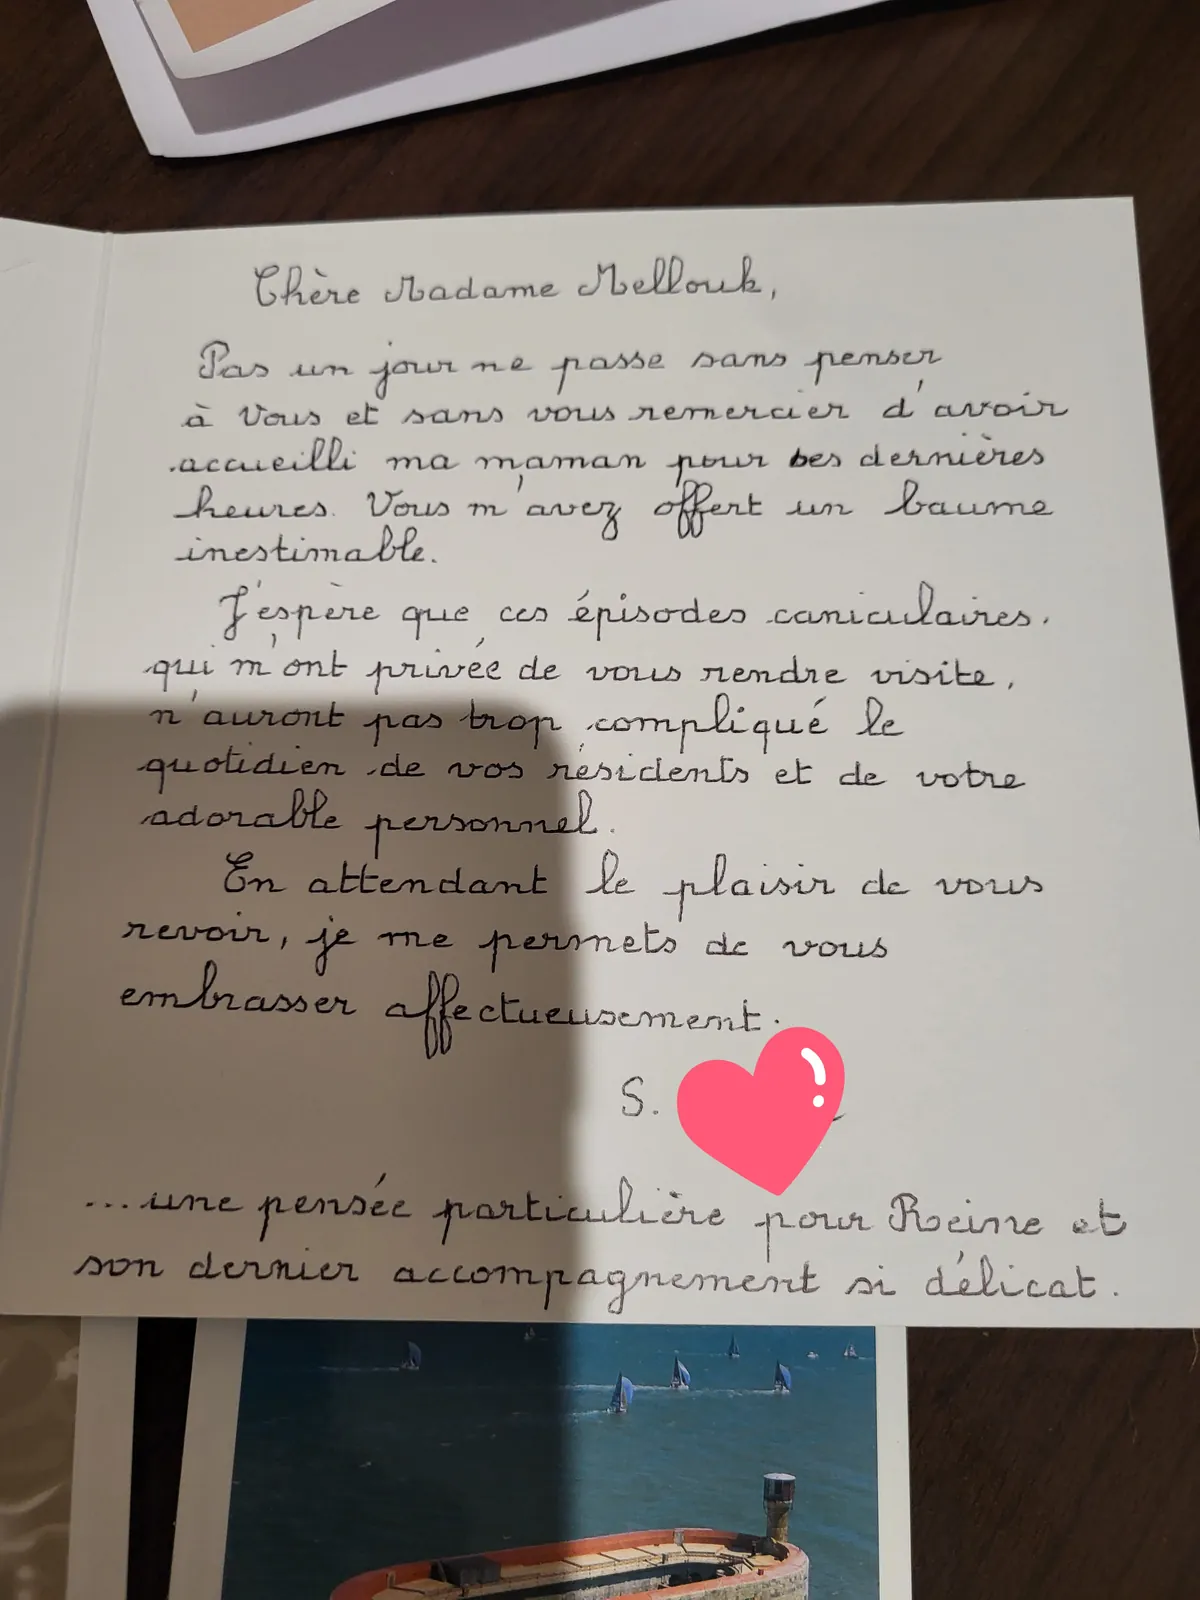 Chère Madame Mellouk,
Pas un jour ne passe sans penser
à Vous et sans vous remercier d'avoir
accueilli ma maman pour ses dernières
heures. Vous m'avez offert un baume
inestimable.
J'espère que ces épisodes caniculaires,
qui m'ont privée de vous rendre visite,
n'auront pas trop compliqué le
quotidien de vos résidents et de votre
adorable personnel.
En attendant le plaisir de vous
revoir, je me permets de vous
embrasser affectueusement.
S.
...une pensée particulière pour Reine et
son dernier accompagnement si délicat.